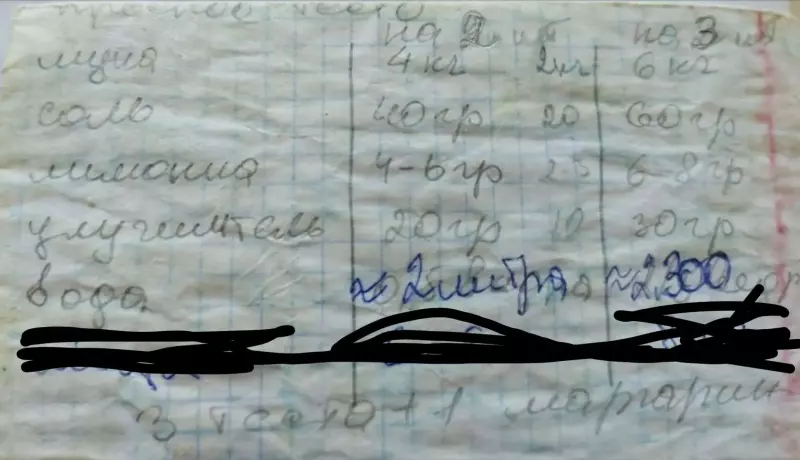 пресное тесто
на 2 шт на 3 шт
мука 4 кг 2 кг 6 кг
соль 40 гр 20 60 гр
лимонка 4-6 гр 2.5 6-8 гр
улучшитель 20 гр 10 30 гр
вода ≈ 2 литра ≈ 2,300
3 теста + 1 маргарин